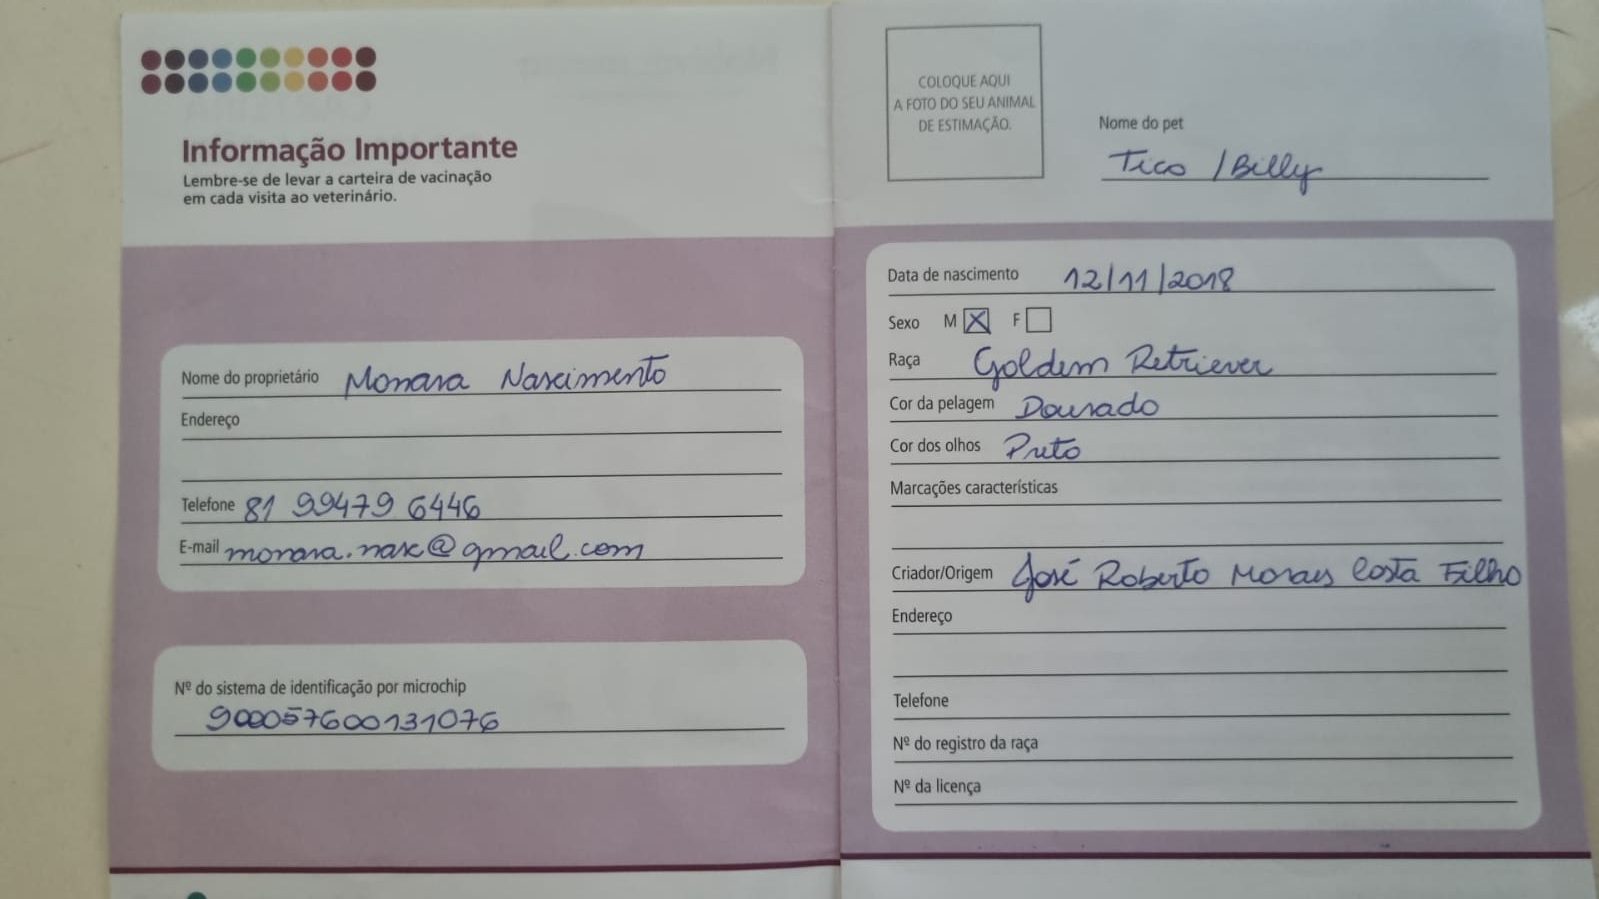 Informação Importante
Lembre-se de levar a carteira de vacinação
em cada visita ao veterinário.
Nome do proprietário Monara Nascimento
Endereço
Telefone 81 99479 6446
E-mail monara.nasc@gmail.com
Nº do sistema de identificação por microchip
900057600131076
COLOQUE AQUI
A FOTO DO SEU ANIMAL
DE ESTIMAÇÃO.
Nome do pet
Tico /Billy
Data de nascimento 12/11/2018
Sexo M X F
Raça Goldem Retriever
Cor da pelagem Dourado
Cor dos olhos Preto
Marcações características
Criador/Origem José Roberto Moraes Costa Filho
Endereço
Telefone
Nº do registro da raça
Nº da licença